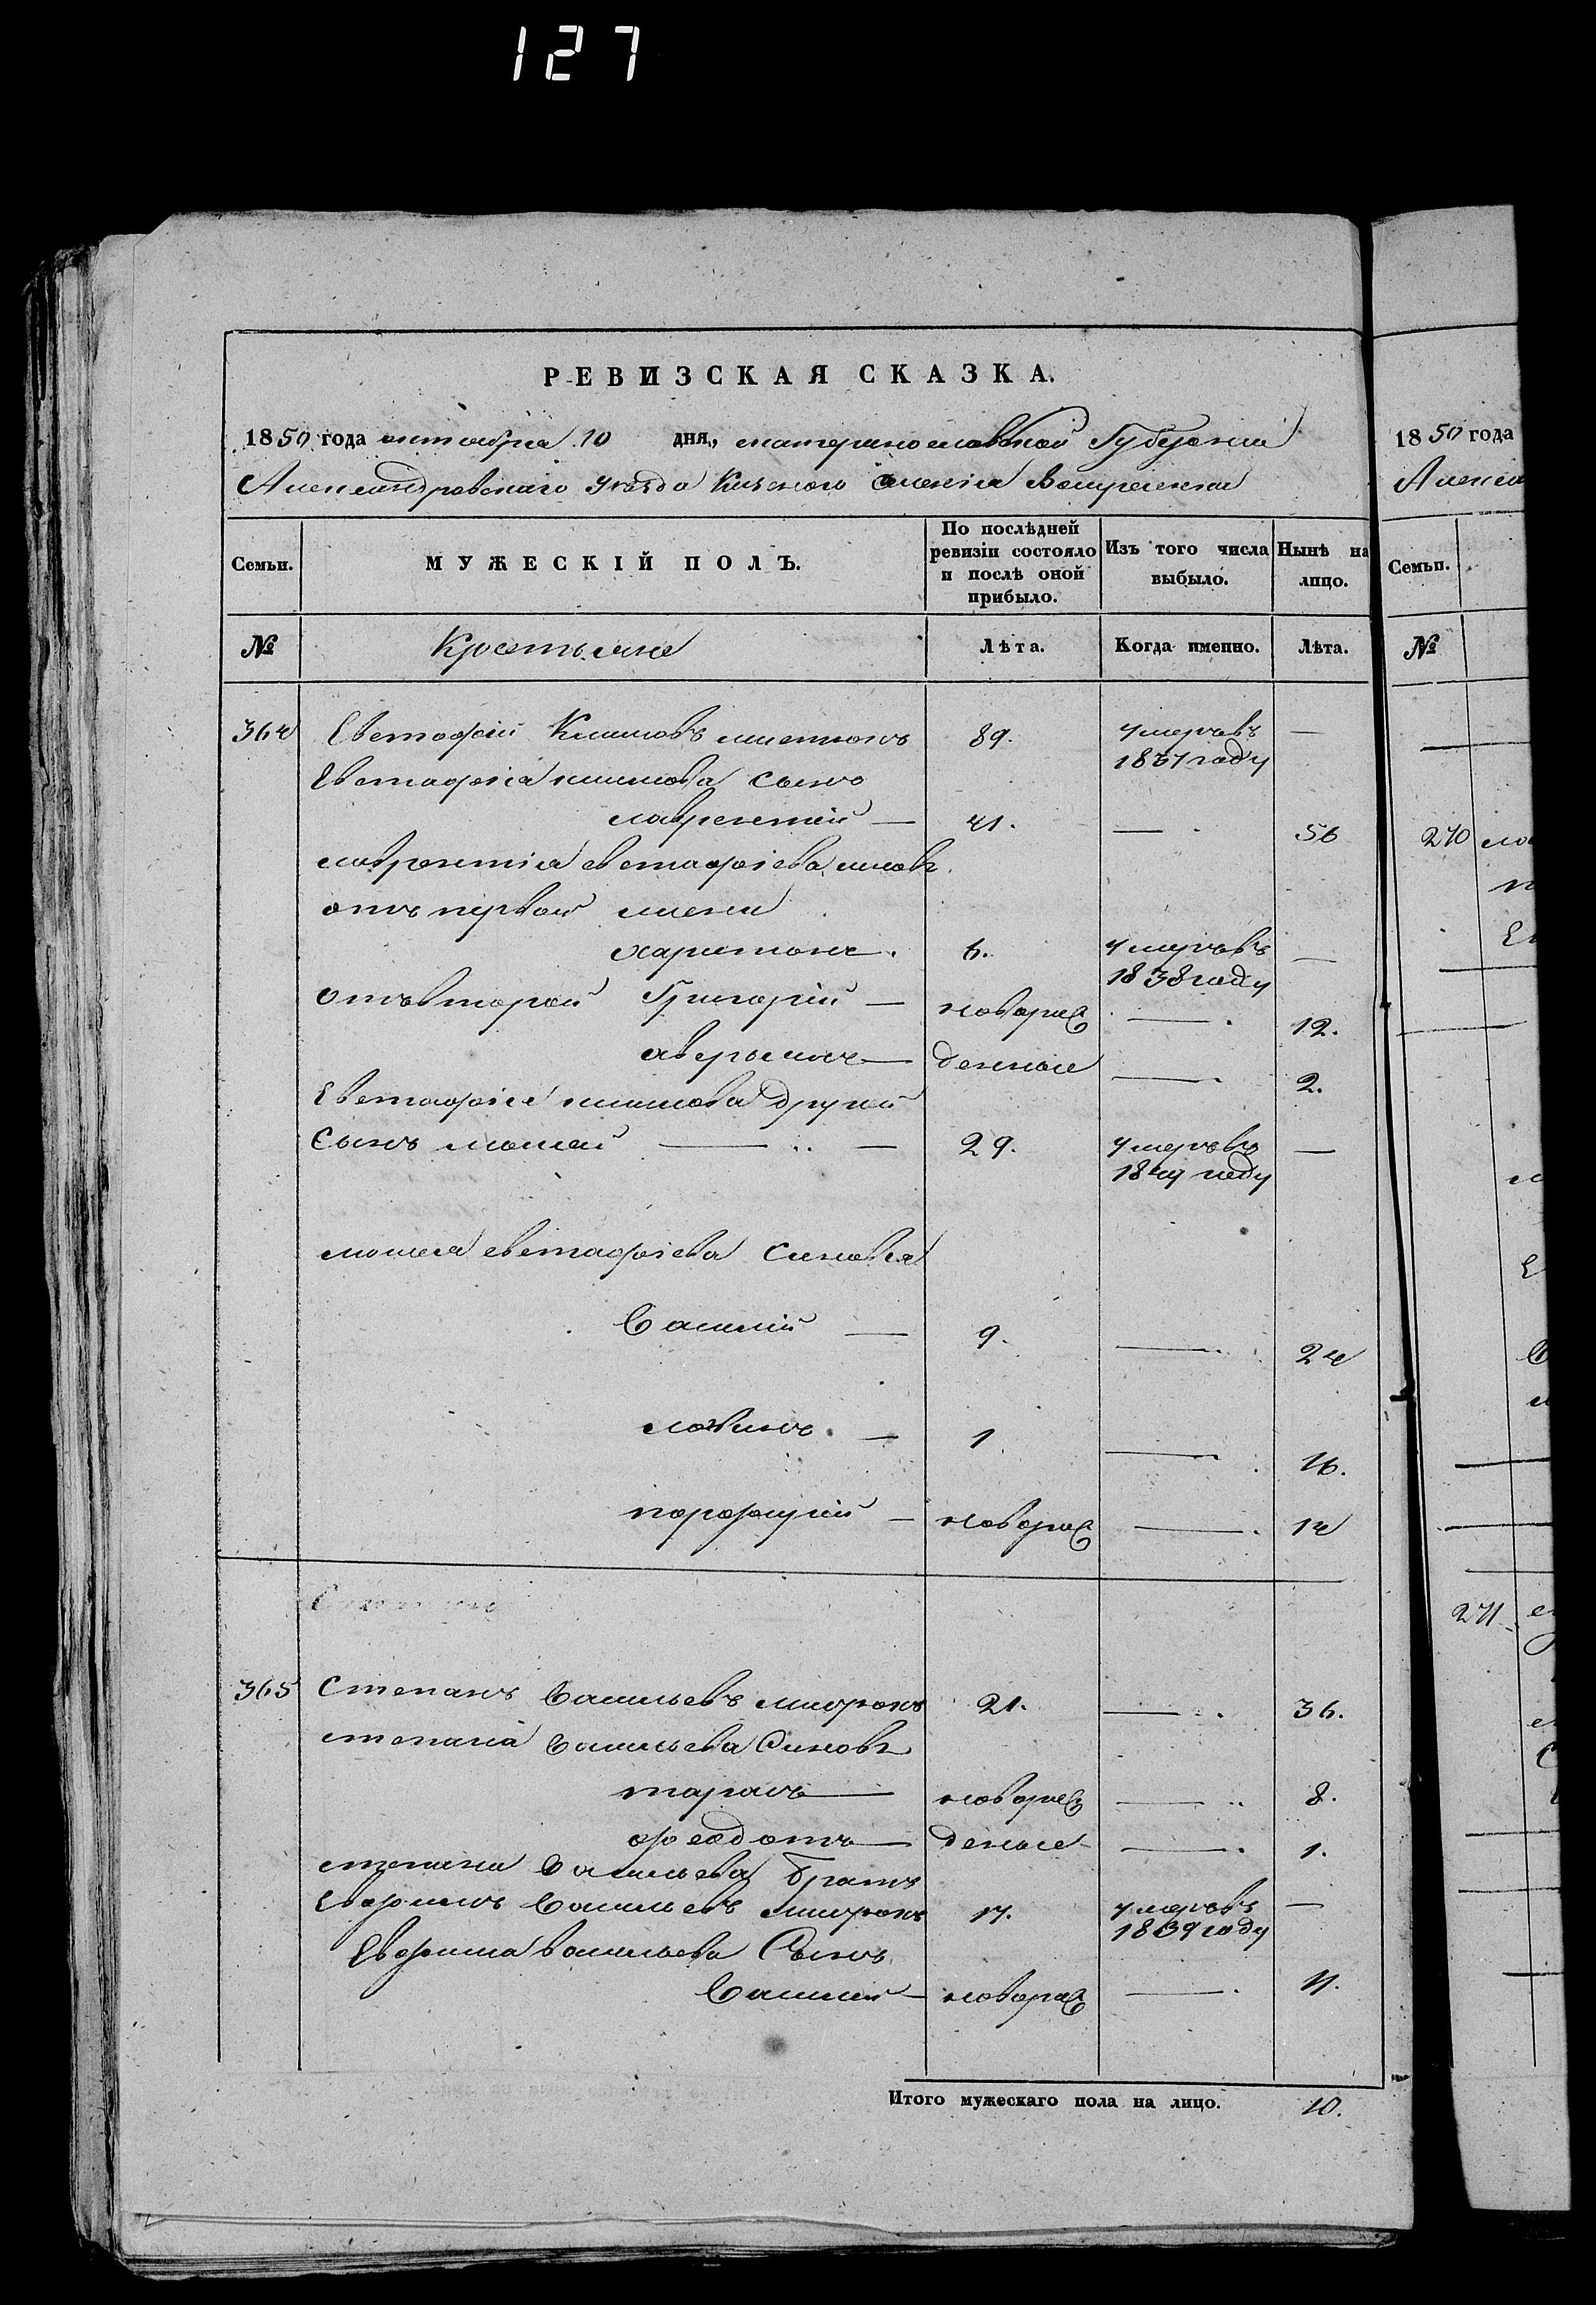 127
РЕВИЗСКАЯ СКАЗКА.
1850 года октября 10 дня, екатеринославской Губернии
Александровскаго уезда Воскресенки
Семьи. МУЖЕСКІЙ ПОЛЪ. По послѣдней ревизіи состояло и послѣ оной прибыло. Изъ того числа выбыло. Нынѣ на лицо.
№ Крестьяне Лѣта. Когда именно. Лѣта.
364 Евстафій Климовъ 89. умеръ въ —
1837 году
Евстафія климова сынъ
лаврентий — 41. — 56
лаврентия евстафіева
отъ первой жены
харитонъ. 6. умеръ въ —
1838 году
отъ второй Григорій — новорож — 12.
аверьянъ — денные — 2.
Евстафія климова другой
сынъ мосей — 29. умеръ въ —
1849 году
мосея евстафіева синовья
Василій — 9. — 24
логинъ — 1 — 16.
порфирий — новорож — 14
365 Степанъ Васильевъ миронъ 21. — 36.
степана Васильева Синовъ
тарасъ — новорож — 8.
федотъ — деные — 1.
степана Васильева братъ
Евфимъ Васильевъ миронъ 17. умеръ въ —
1839 году
Евфима васильева Сынъ
Василий — новорож — 11.
Итого мужескаго пола на лицо. 10.
1850 года
Семьи.
№
270
271